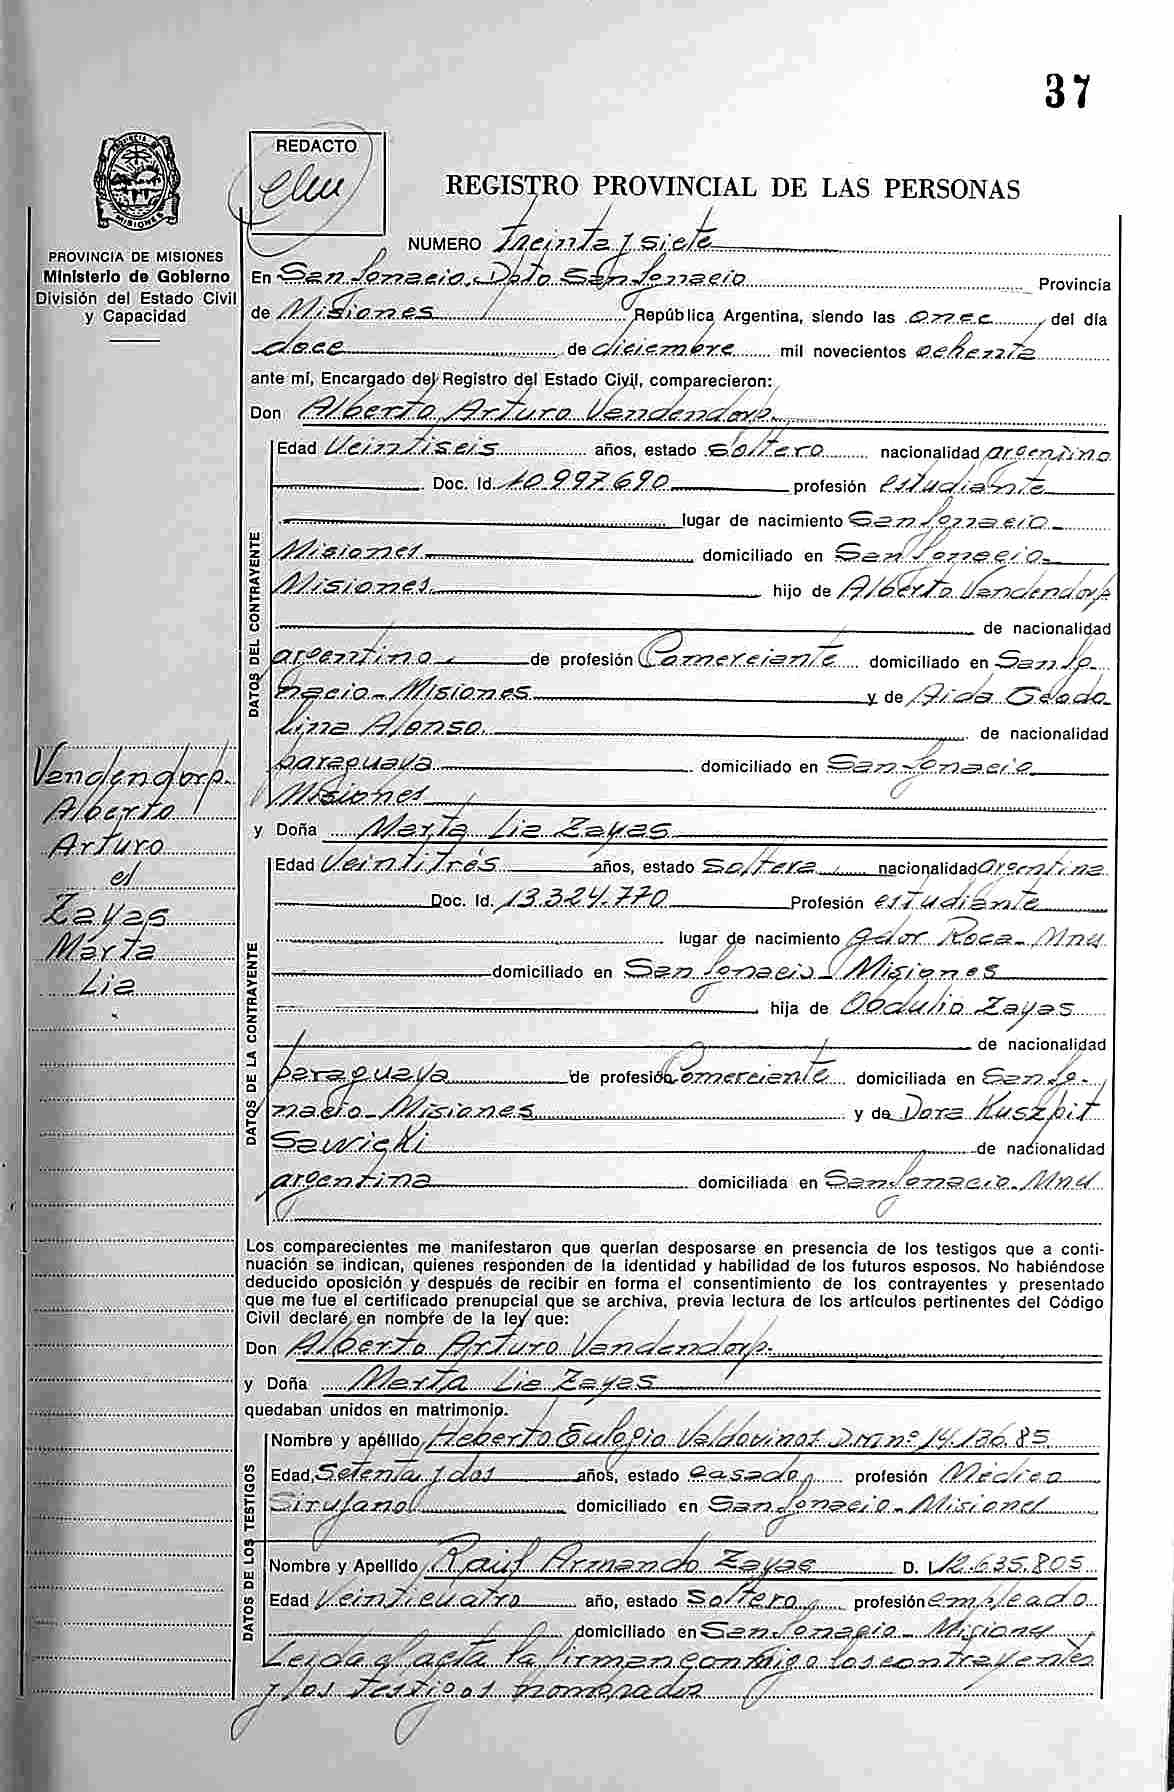 37
REDACTO
REGISTRO PROVINCIAL DE LAS PERSONAS
PROVINCIA DE MISIONES
Ministerio de Gobierno
División del Estado Civil
y Capacidad
NUMERO treinta y siete
En San Ignacio, Dpto San Ignacio Provincia
de Misiones República Argentina, siendo las once del día
doce de diciembre mil novecientos ochenta
ante mí, Encargado del Registro del Estado Civil, comparecieron:
Don Alberto Arturo Vandendorp.
Edad Veintiseis años, estado soltero nacionalidad argentino
Doc. Id. 10.997.690 profesión estudiante
lugar de nacimiento San Ignacio
Misiones domiciliado en San Ignacio
Misiones hijo de Alberto Vandendorp
de nacionalidad
argentino de profesión Comerciante domiciliado en San Ig-
nacio - Misiones y de Aida Geodo-
lina Alonso de nacionalidad
paraguaya domiciliado en San Ignacio
Misiones
DATOS DEL CONTRAYENTE
Vandendorp.
Alberto
Arturo
Zayas
Marta
Lia
y Doña Marta Lia Zayas
Edad Veintitrés años, estado Soltera nacionalidad argentina
Doc. Id. 13.324.770 Profesión estudiante
lugar de nacimiento Gdor Roca - Mnes
domiciliado en San Ignacio - Misiones
hija de Obdulio Zayas
de nacionalidad
paraguaya de profesión Comerciante domiciliada en San Ig-
nacio - Misiones y de Dora Kuszpit
Sawicki de nacionalidad
argentina domiciliada en San Ignacio - Mnes
DATOS DE LA CONTRAYENTE
Los comparecientes me manifestaron que querían desposarse en presencia de los testigos que a conti-
nuación se indican, quienes responden de la identidad y habilidad de los futuros esposos. No habiéndose
deducido oposición y después de recibir en forma el consentimiento de los contrayentes y presentado
que me fue el certificado prenupcial que se archiva, previa lectura de los artículos pertinentes del Código
Civil declaré en nombre de la ley que:
Don Alberto Arturo Vandendorp.
y Doña Marta Lia Zayas
quedaban unidos en matrimonio.
Nombre y apéllido Heberto Eulogio Valdovinos D.M nº 14.136.85
Edad Setenta y dos años, estado casado profesión Médico
Sirujano domiciliado en San Ignacio - Misiones
Nombre y Apellido Raúl Armando Zayas D. I. 12.635.805
Edad Veinticuatro año, estado Soltero profesión empleado
domiciliado en San Ignacio - Misiones
DATOS DE LOS TESTIGOS
Leida el acta la firman conmigo los contrayentes
y los testigos nombrados